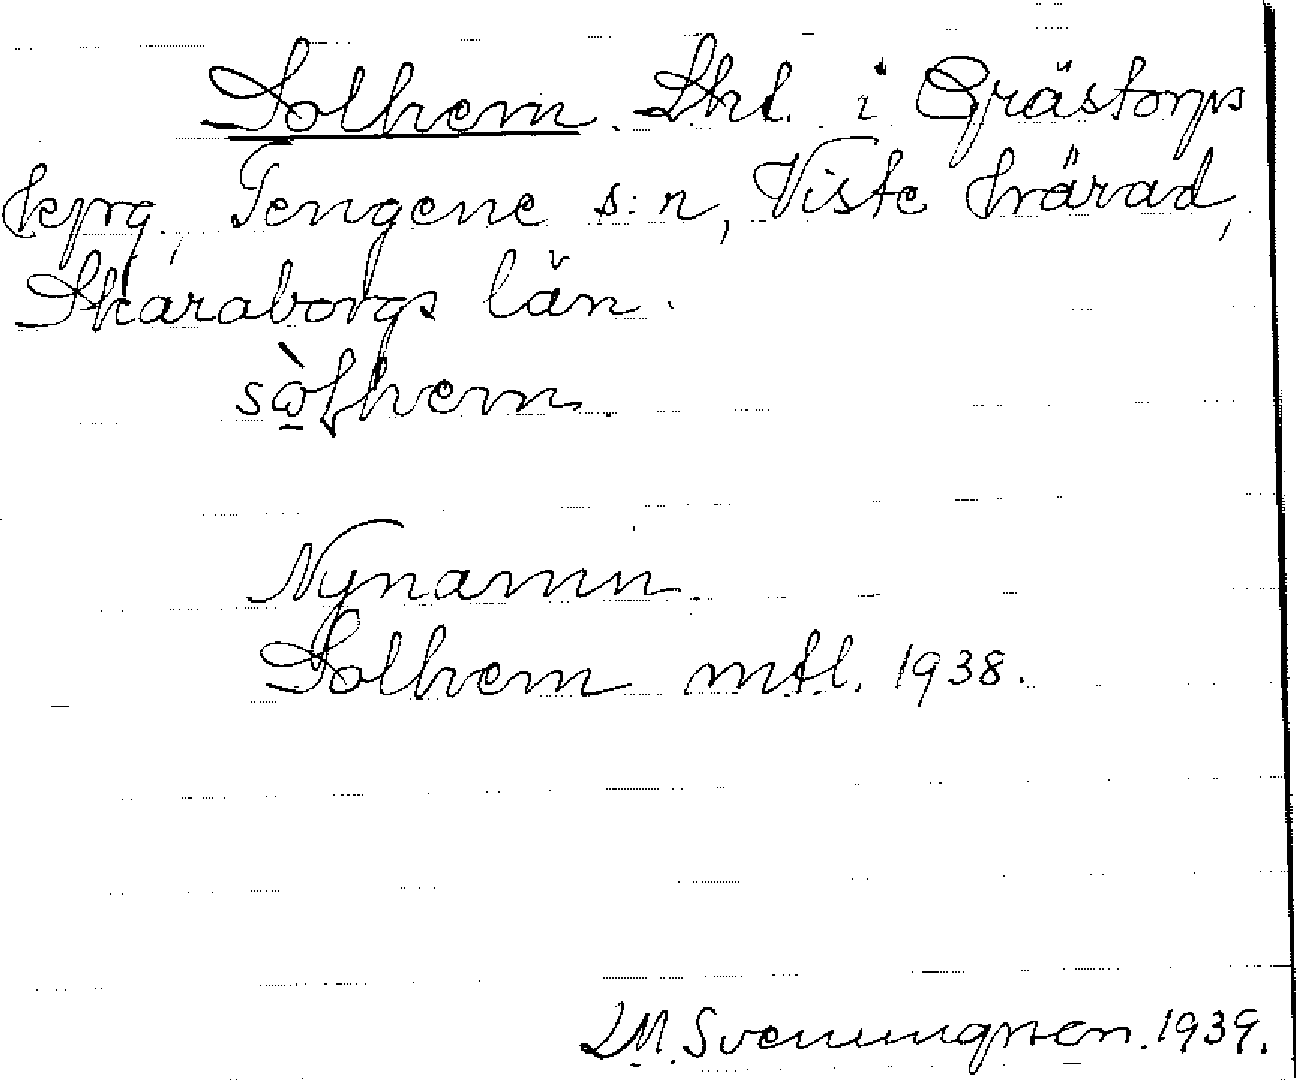 Solhem. Lhl. i Grästorps
kprg, Tengene s:n, Viste härad,
Skaraborgs län.
Nynamn.
Solhem mtl. 1938.
M. Svenungsson. 1939.